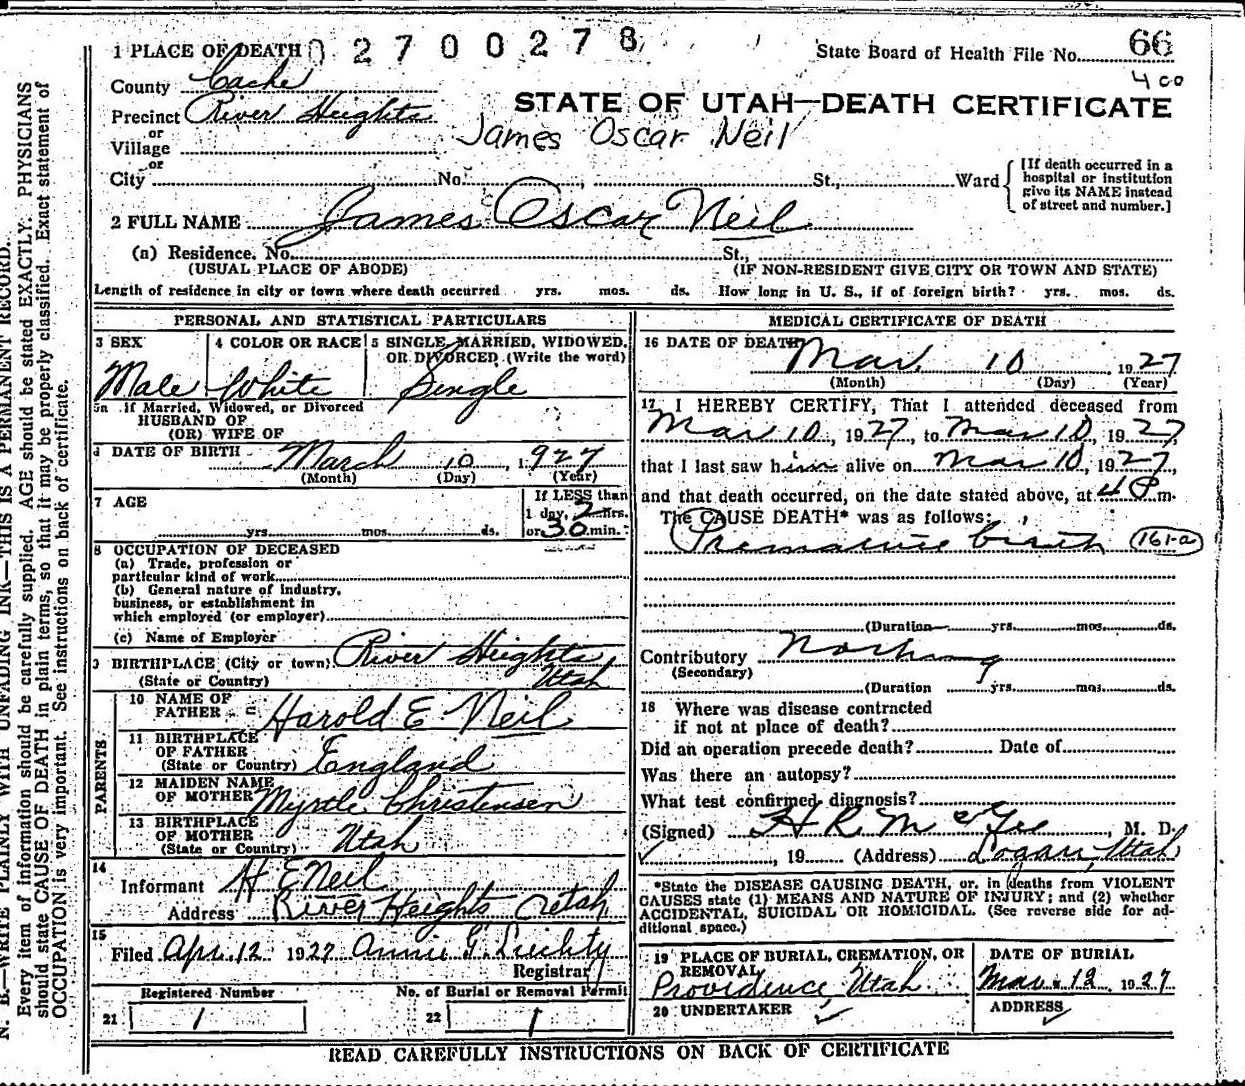 1 PLACE OF DEATH 02700278 State Board of Health File No. 66
400
County Cache
STATE OF UTAH—DEATH CERTIFICATE
Precinct River Heights
or
James Oscar Neil
Village
or
City No. , St., Ward
[If death occurred in a
hospital or institution
give its NAME instead
of street and number.]
2 FULL NAME James Oscar Neil
(a) Residence. No. St.,
(USUAL PLACE OF ABODE) (IF NON-RESIDENT GIVE CITY OR TOWN AND STATE)
Length of residence in city or town where death occurred yrs. mos. ds. How long in U. S., if of foreign birth? yrs. mos. ds.
PERSONAL AND STATISTICAL PARTICULARS
3 SEX 4 COLOR OR RACE 5 SINGLE, MARRIED, WIDOWED,
OR DIVORCED (Write the word)
Male White Single
5a if Married, Widowed, or Divorced
HUSBAND OF
(OR) WIFE OF
DATE OF BIRTH March 10, 1927
(Month) (Day) (Year)
7 AGE If LESS than
1 day, 2 hrs.
yrs. mos. ds. or 30 min.
8 OCCUPATION OF DECEASED
(a) Trade, profession or
particular kind of work
(b) General nature of industry,
business, or establishment in
which employed (or employer)
(c) Name of Employer
9 BIRTHPLACE (City or town) River Heights
(State or Country) Utah
PARENTS
10 NAME OF
FATHER Harold E. Neil
11 BIRTHPLACE
OF FATHER
(State or Country) England
12 MAIDEN NAME
OF MOTHER Myrtle Christensen
13 BIRTHPLACE
OF MOTHER
(State or Country) Utah
14
Informant H E Neil
Address River Heights Utah
15
Filed Apr. 12 1927 Annie G. Liechty
Registrar
Registered Number No. of Burial or Removal Permit
21 1 22 1
MEDICAL CERTIFICATE OF DEATH
16 DATE OF DEATH
Mar. 10, 1927
(Month) (Day) (Year)
17 I HEREBY CERTIFY, That I attended deceased from
Mar 10, 1927, to Mar 10, 1927,
that I last saw him alive on Mar 10, 1927,
and that death occurred, on the date stated above, at 4 P m.
The CAUSE DEATH* was as follows:
Premature birth 161-a
(Duration yrs. mos. ds.
Contributory Nothing
(Secondary)
(Duration yrs. mos. ds.
18 Where was disease contracted
if not at place of death?
Did an operation precede death? Date of
Was there an autopsy?
What test confirmed diagnosis?
(Signed) H R McGee, M. D.
, 19 (Address) Logan, Utah
*State the DISEASE CAUSING DEATH, or, in deaths from VIOLENT
CAUSES state (1) MEANS AND NATURE OF INJURY; and (2) whether
ACCIDENTAL, SUICIDAL OR HOMICIDAL. (See reverse side for ad-
ditional space.)
19 PLACE OF BURIAL, CREMATION, OR
REMOVAL
Providence, Utah
DATE OF BURIAL
Mar. 12 1927
20 UNDERTAKER ADDRESS
READ CAREFULLY INSTRUCTIONS ON BACK OF CERTIFICATE
N. B.—WRITE PLAINLY WITH UNFADING INK—THIS IS A PERMANENT RECORD.
Every item of information should be carefully supplied. AGE should be stated EXACTLY. PHYSICIANS
should state CAUSE OF DEATH in plain terms, so that it may be properly classified. Exact statement of
OCCUPATION is very important. See instructions on back of certificate.